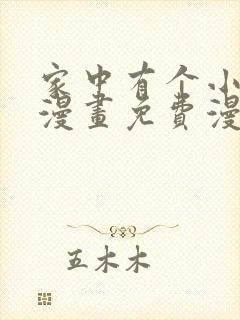 家中有个小
漫畫免費漫
五木木